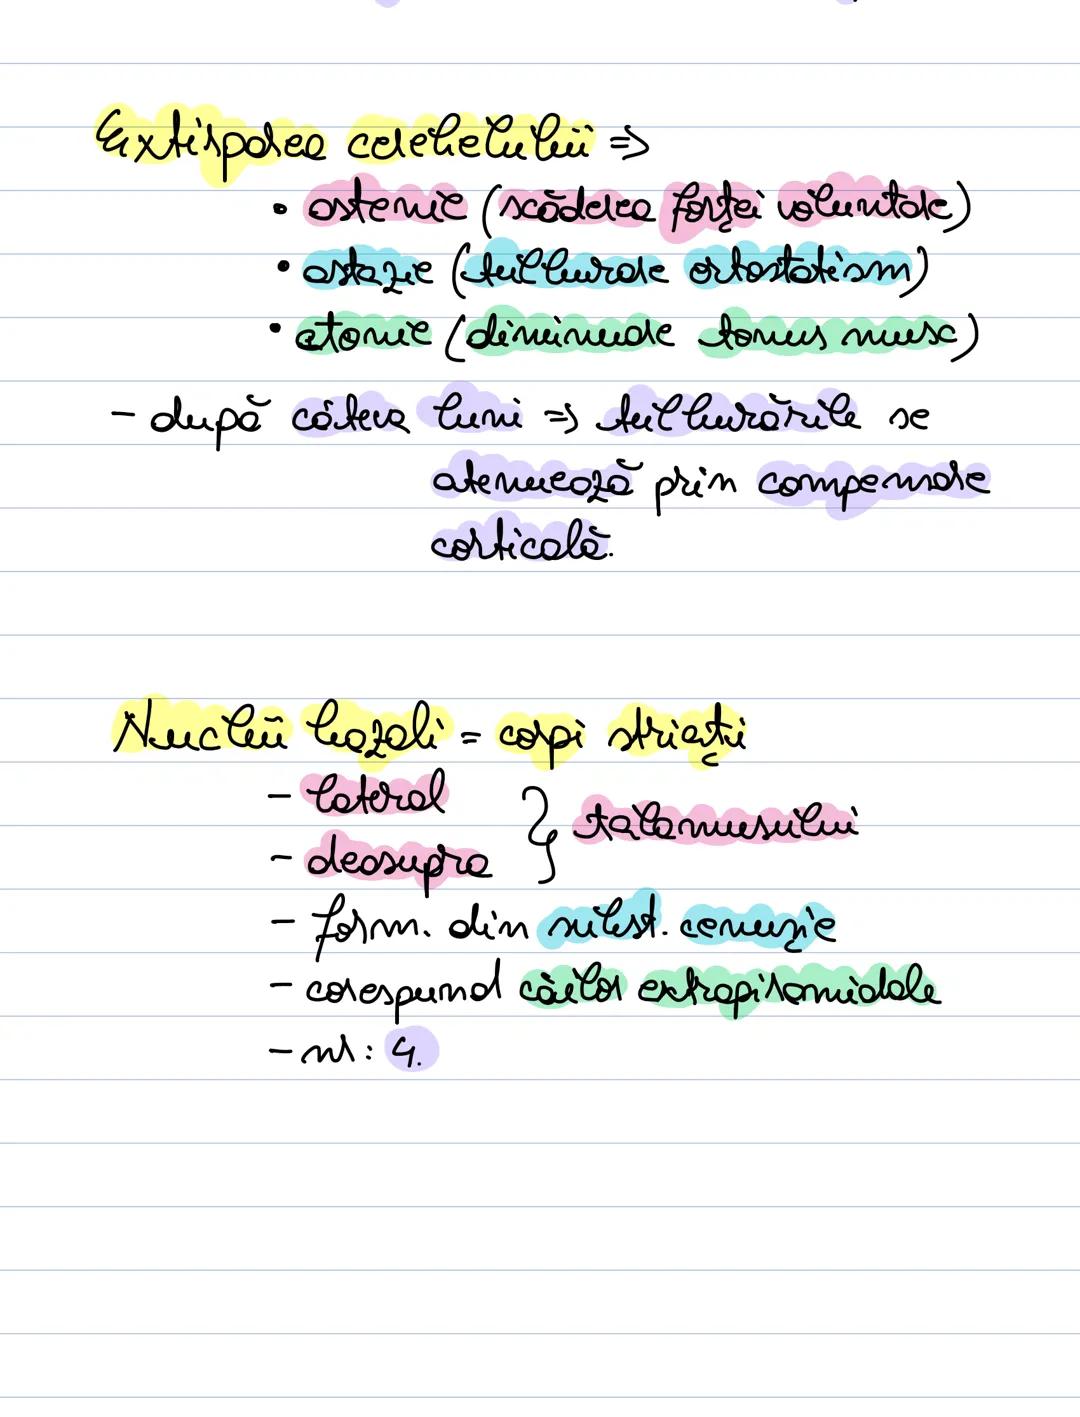 Extirparea cerebelului =>
• astenie (scăderea forței voluntare)
• astazie (tulburare ortostatism)
• atonie (diminuare tonus musc)
- după câteva luni => tulburările se
atenuează prin compensare
corticală.
Nuclii bazali = corpi striați
- lateral
- deasupra } talamusului
- form. din subst. cenușie
- corespund căilor extrapiramidale
- nr: 4.